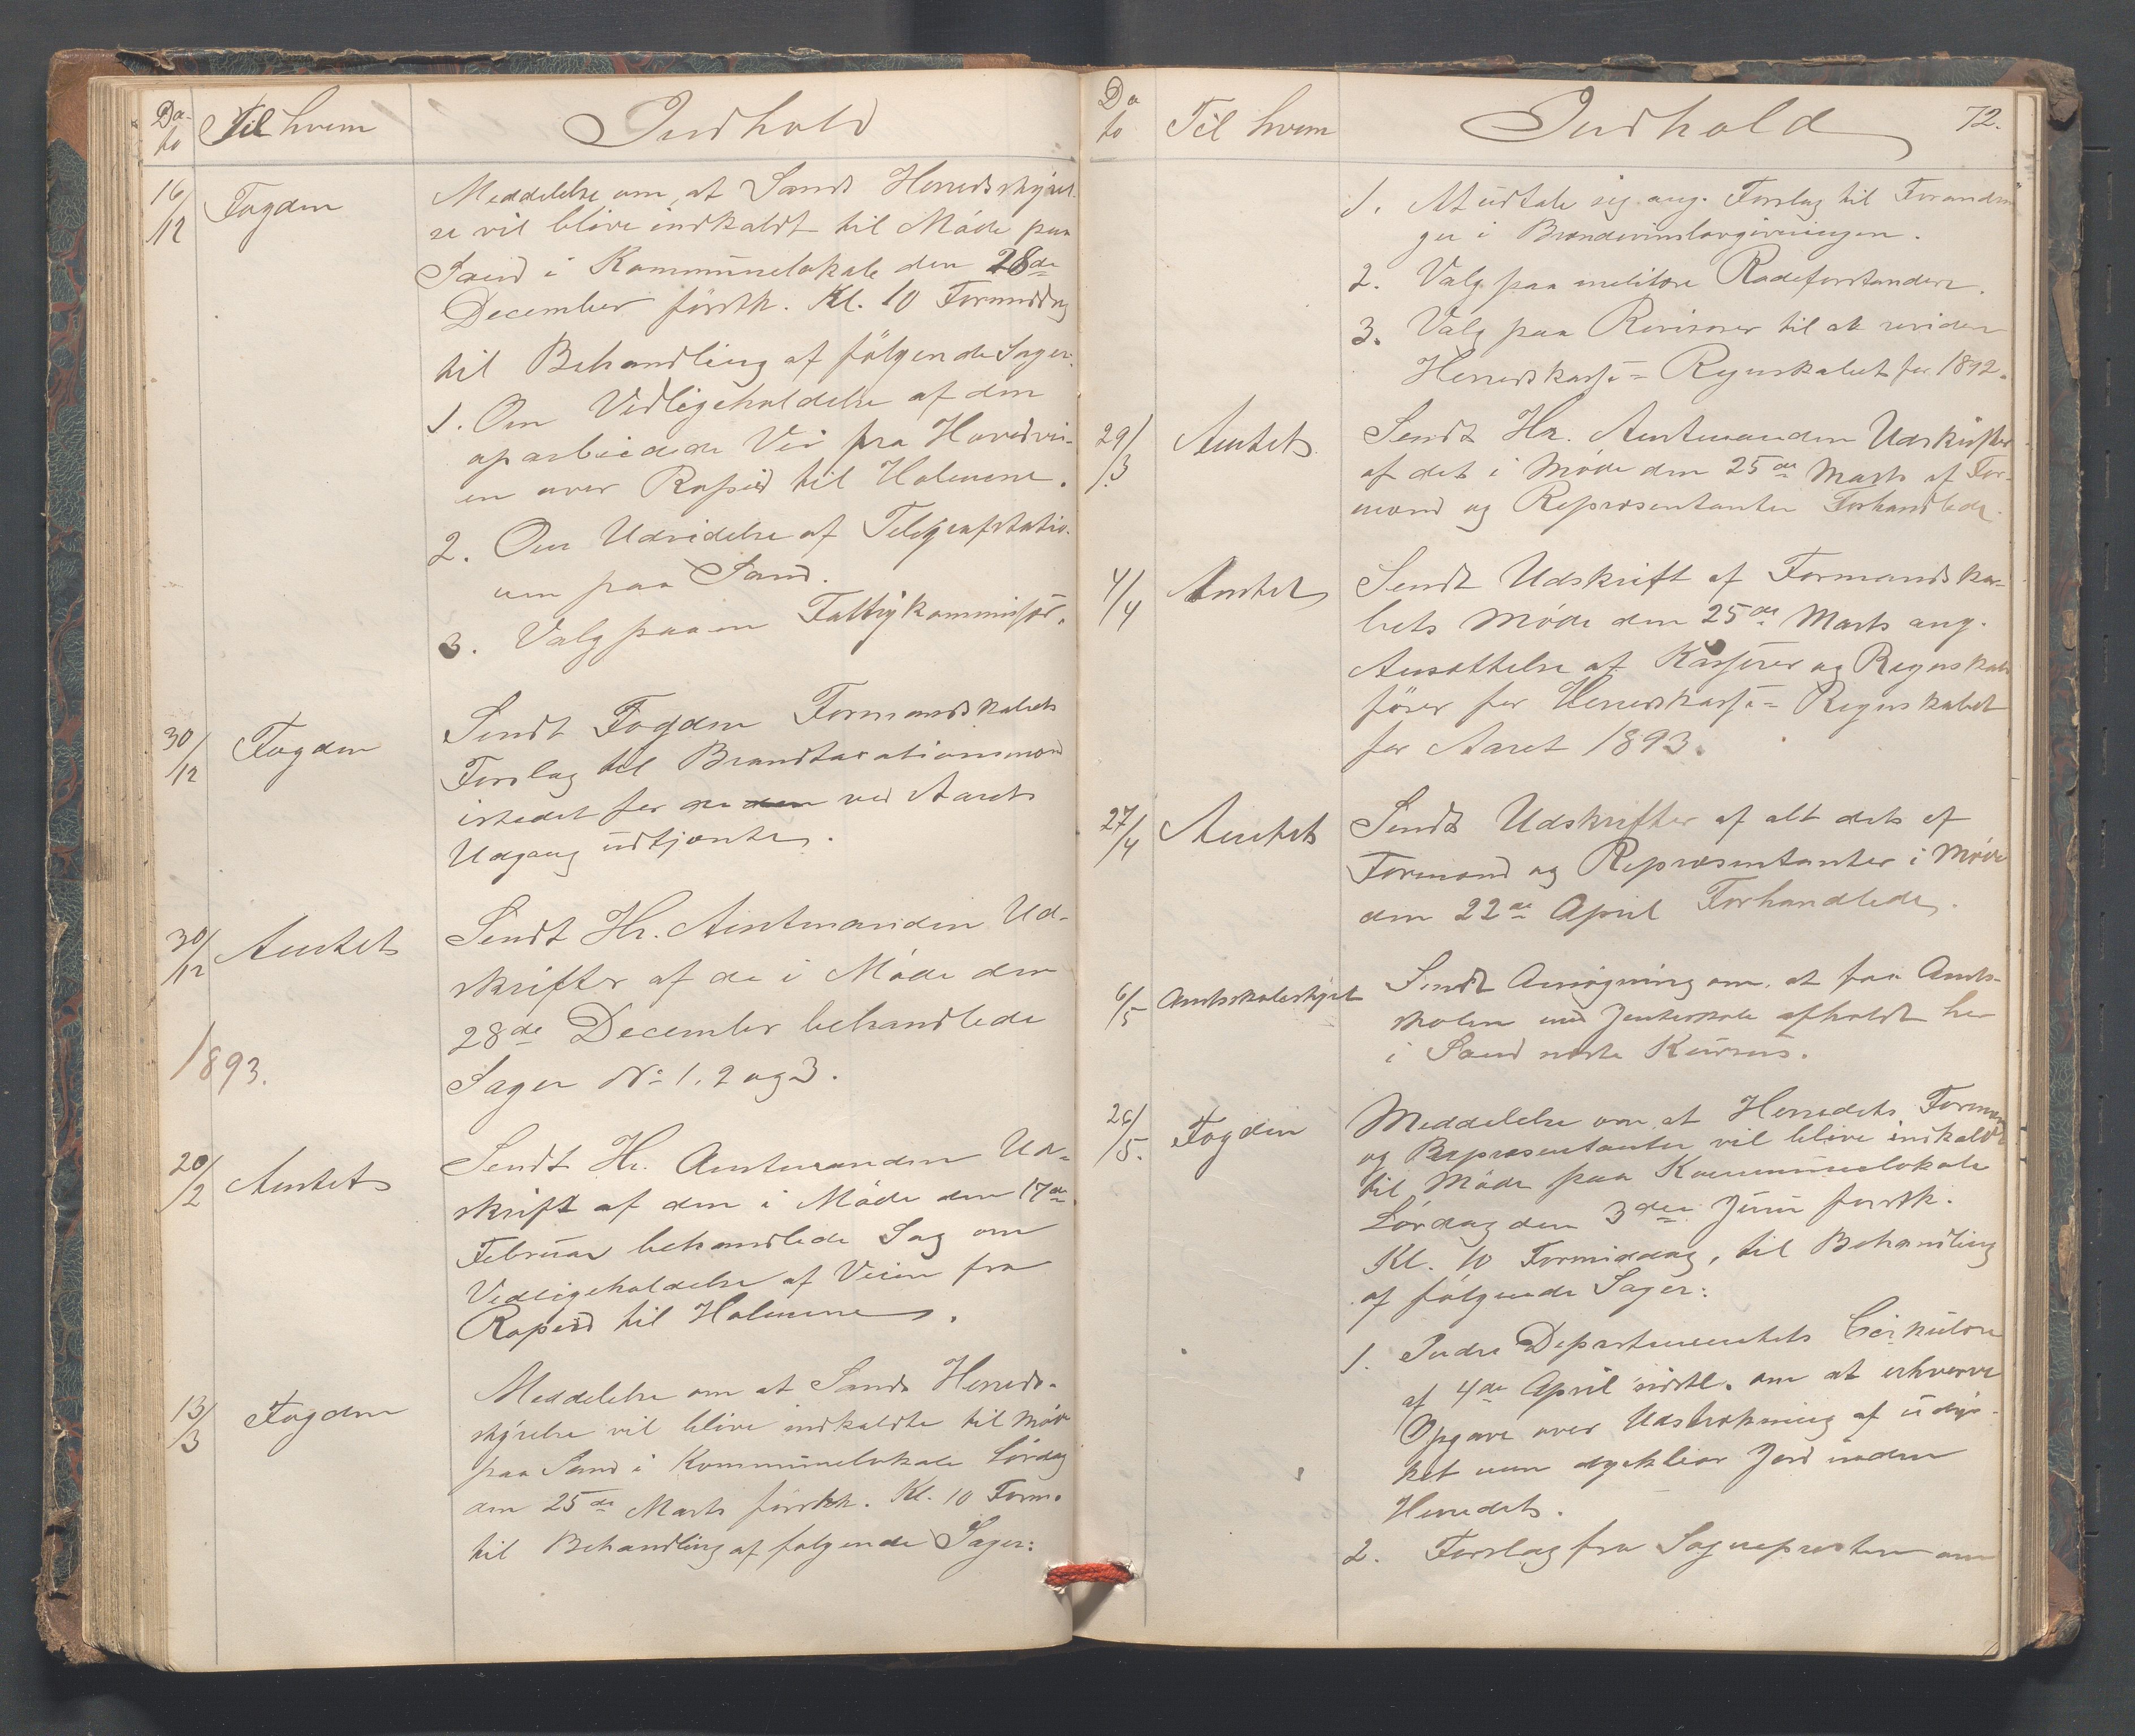 Da-
to
Til hvem
Indhold
16/12
Fogden
Meddelelse om, at Sands Herredsstyrel-
se vil blive indkaldt til Møde paa
Sand i Kommunelokale den 28de
December førstk. Kl. 10 Formiddag
til Behandling af følgende Sager:
1. Om Vedligeholdelse af den
oparbeidede Vei fra Hovedvei-
en over Rapeid til Holmene.
2. Om Udvidelse af Telegrafstatio-
nen paa Sand.
3. Valg paa en Fattigkommissær.
30/12
Fogden
Sendt Fogden Formandskabets
Forslag til Brandtaxationsmænd
istedet for de den ved Aarets
Udgang udtjente.
30/12
Amtet
Sendt Hr. Amtmanden Ud-
skrifter af de i Møde den
28de December behandlede
Sager No 1, 2 og 3.
1893.
20/2
Amtet
Sendt Hr. Amtmanden Ud-
skrift af den i Møde den 17de
Februar behandlede Sag om
Vedligeholdelse af Veien fra
Rapeid til Holmene.
13/3
Fogden
Meddelelse om at Sands Herreds-
styrelse vil blive indkaldte til Møde
paa Sand i Kommunelokale Lørdag
den 25de Marts førstk. Kl. 10 Form.
til Behandling af følgende Sager:
Da
to
Til hvem
Indhold
72.
1. At udtale sig ang. Forslag til Forandrin
ger i Brændevinslovgivningen.
2. Valg paa militære Rodeforstandere.
3. Valg paa Revisorer til at revidere
Herredskasse=Regnskabet for 1892.
29/3
Amtet
Sendt Hr. Amtmanden Udskrifter
af det i Møde den 25de Marts af For-
mænd og Repræsentanter Forhandlede.
4/4
Amtet
Sendt Udskrift af Formandska-
bets Møde den 25de Marts ang.
Ansættelse af Kasserer og Regnskabs
fører for Herredskasse=Regnskabet
for Aaret 1893.
27/4
Amtet
Sendt Udskrifter af alt det af
Formænd og Repræsentanter i Møde
den 22de April Forhandlede.
6/5
Amtsskolestyret
Sendt Ansøgning om, at faa Amts-
skolen med Jenteskole afholdt her
i Sand neste Kursus.
26/5.
Fogden
Meddelelse om at Herredets Formænd
og Repræsentanter vil blive indkaldt
til Møde paa Kommunelokale
Lørdag den 3die Juni førstk.
Kl. 10 Formiddag, til Behandling
af følgende Sager:
1. Indre Departementets Cirkulære
af 4de April sidstl. om at erhverve
Opgave over Udstrækning af udyr-
ket men dyrkbar Jord inden
Herredet.
2. Forslag fra Sognepresten om